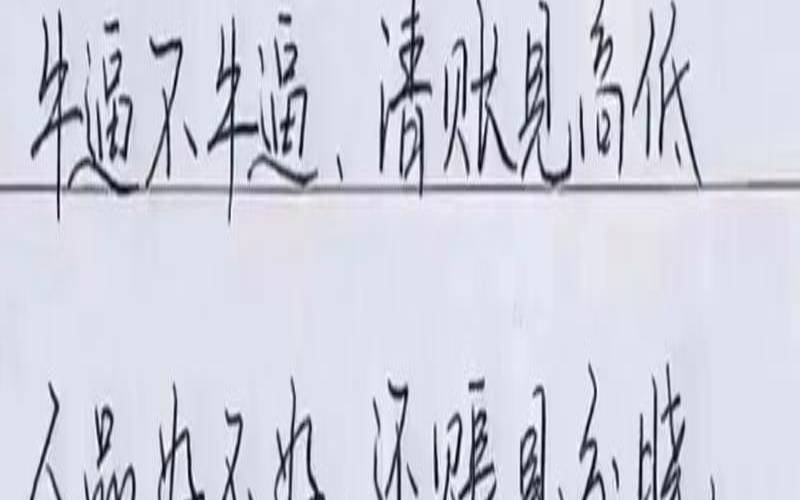 牛逼不牛逼、清账见高低
人品好不好 还账见分晓、